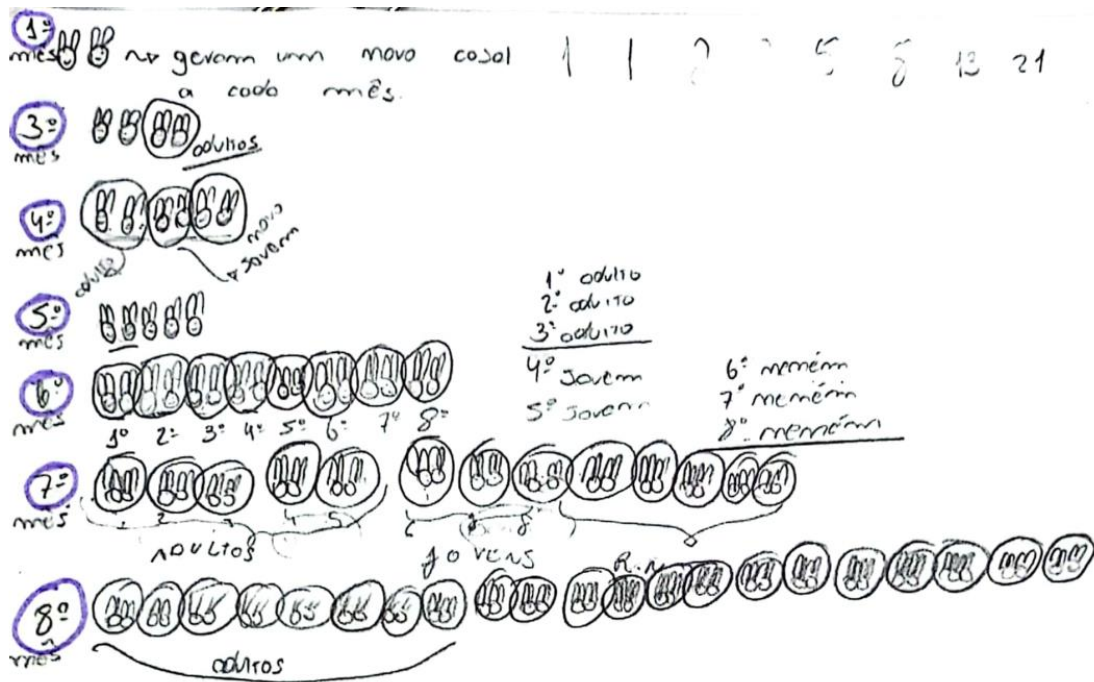 1º mês ~> geram um novo casal 1 1 2 5 8 13 21
a cada mês.
3º mês
adultos
4º mês
adulto
novo
Jovem
5º mês
1º adulto
2º adulto
3º adulto
4º Jovem
5º Jovem
6º memém
7º memém
8º memém
6º mês
1º 2º 3º 4º 5º 6º 7º 8º
7º mês
1 2 3 4 5
ADULTOS
JOVENS
R.N
8º mês
adultos